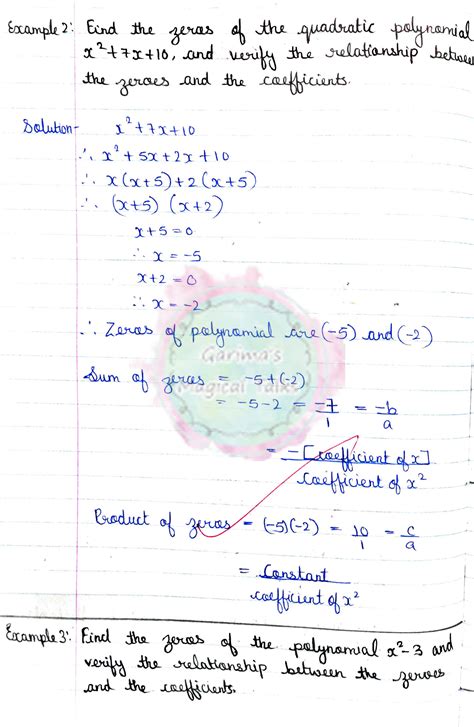 Example 2: Find the zeros of the quadratic polynomial
x²+7x+10, and verify the relationship between
the zeroes and the coefficients.
Solution- x²+7x+10
∴ x²+5x+2x+10
∴ x(x+5)+2(x+5)
∴ (x+5) (x+2)
x+5=0
∴ x = -5
x+2=0
∴ x = -2
∴ Zeros of polynomial are (-5) and (-2)
Garima's
Magical Talks
Sum of zeros = -5+(-2)
= -5-2 = -7/1 = -b/a
= -[coefficient of x]/coefficient of x²
Product of zeros = (-5)(-2) = 10/1 = c/a
= Constant/coefficient of x²
Example 3: Find the zeros of the polynomial x²-3 and
verify the relationship between the zeroes
and the coefficients.